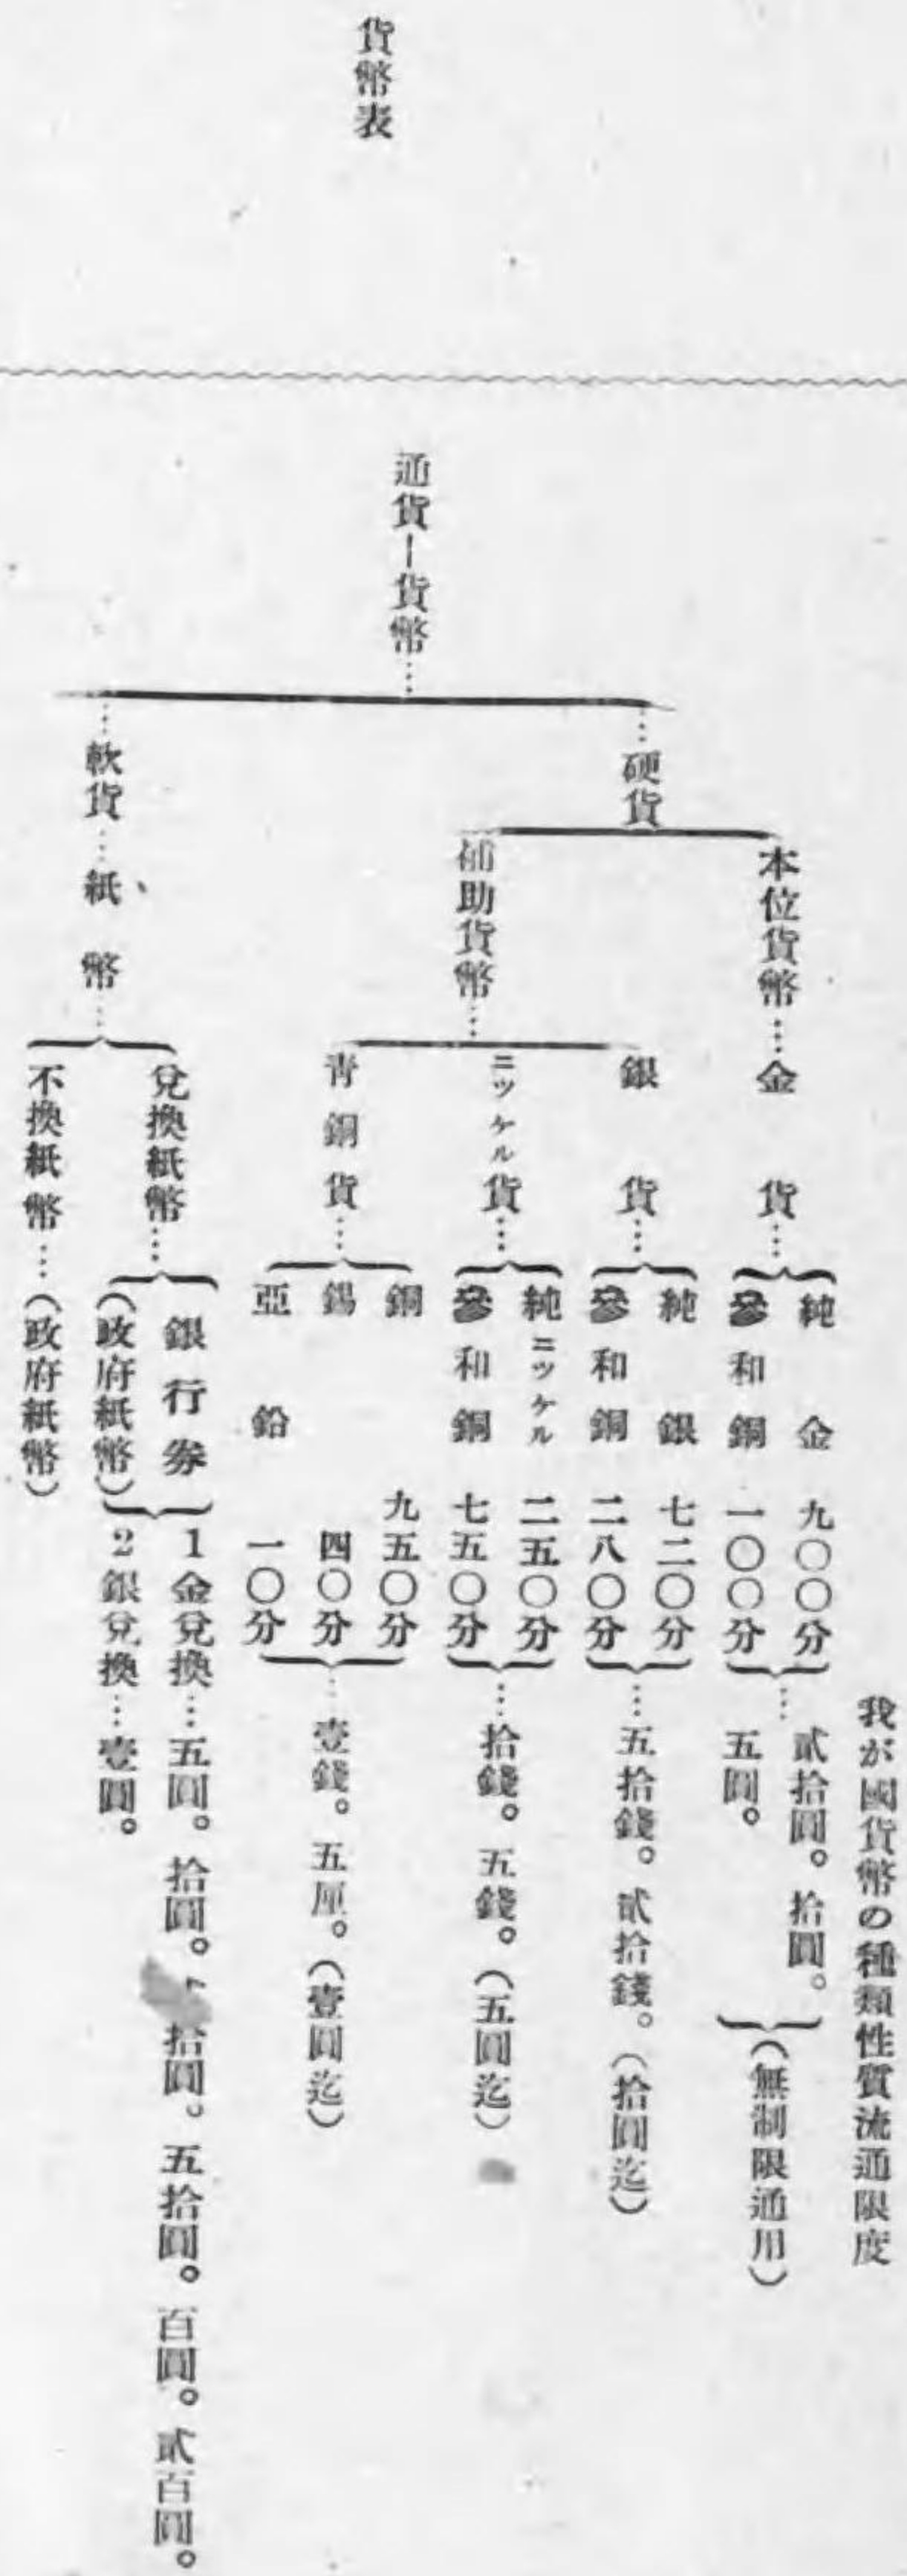 貨幣表
我が國貨幣の種類性質流通限度
通貨―貨幣……
…硬貨
本位貨幣……金貨…
純金 九〇〇分
參和銅 一〇〇分
…貳拾圓。拾圓。
五圓。
(無制限通用)
補助貨幣……
銀貨…
純銀 七二〇分
參和銅 二八〇分
…五拾錢。貳拾錢。(拾圓迄)
ニツケル貨…
純ニツケル 二五〇分
參和銅 七五〇分
…拾錢。五錢。(五圓迄)
青銅貨…
銅 九五〇分
錫 四〇分
亞鉛 一〇分
…壹錢。五厘。(壹圓迄)
…軟貨…紙幣…
兌換紙幣…
銀行券
(政府紙幣)
1金兌換…五圓。拾圓。拾圓。五拾圓。百圓。貳百圓。
2銀兌換…壹圓。
不換紙幣…(政府紙幣)